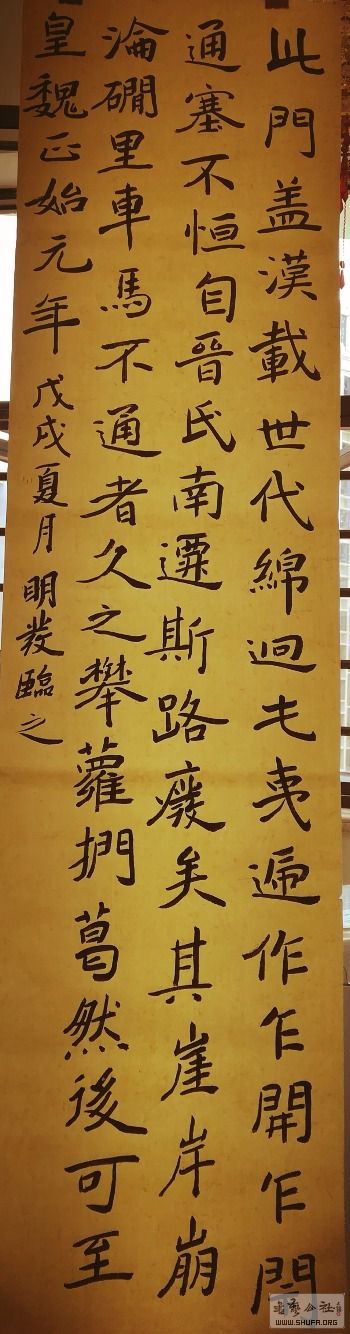 此門盖漢載世代綿迴屯夷遞作乍開乍閇
通塞不恒自晉氏南遷斯路癈矣其崖岸崩
淪磵里車馬不通者久之攀蘿捫葛然後可至
皇魏正始元年 戊戌夏月明發臨之
公社
WWW.SHUFA.ORG